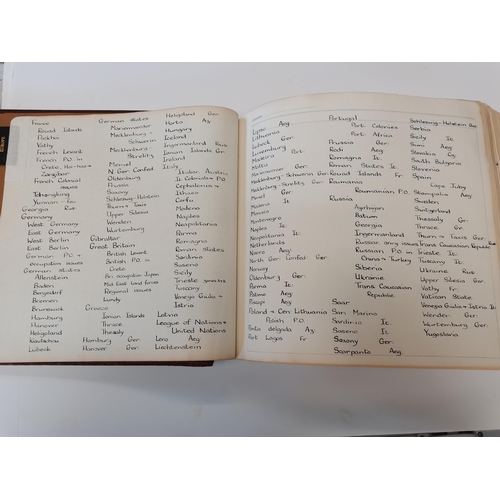 France
Rouad Islands
Pakhoi
Vathy
French Levant
French P.O. in
Crete, Hoi-hao
Zanzibar
French Colonial
issues
Tchongking
Yunnan-Fou
Georgia Rus
Germany
West Germany
East Germany
West Berlin
East Berlin
German P.O +
occupation issues
German States
Allenstein
Baden
Bergedorf
Bremen
Brunswick
Hamburg
Hanover
Heligoland
Kiautschou
Lübeck
German States
Marienwerder
Mecklenburg-
Schwerin
Mecklenburg-
Strelitz
Memel
N. Ger. Confed
Oldenburg
Prussia
Saxony
Schleswig-Holstein
Thurn + Taxis
Upper Silesia
Wenden
Wurtemburg
Gibraltar
Great Britain
British Levant
British P.O. in
Crete
Br. occupation Japan
Mid East land forces
Regional issues
Lundy
Greece
Ionian Islands
Thrace
Thessaly
Hamburg Ger
Hanover Ger.
Heligoland Ger
Horta Az
Hungary
Iceland
Ingermanland Rus
Ionian Islands Gr.
Ireland
Italy
Italian Austria
It. Colonies + P.O
Cephalonia +
Ithaca
Corfu
Modena
Naples
Neapolitania
Parma
Romagna
Roman States
Sardinia
Saseno
Sicily
Trieste
Tuscany
Venezia Giulia +
Istria
Latvia
League of Nations +
United Nations
Lero Aeg
Liechtenstein
Lipso Aeg
Lithuania
Lubeck Ger.
Luxemburg
Madeira Port
Malta
Marienwerder Ger
Mecklenburg-Schwerin Ger
Mecklenburg-Strelitz, Ger.
Memel
Modena It
Monaco
Montenegro
Naples It.
Neapolitania It
Netherlands
Nisiro Aeg
North Ger. Confed Ger.
Norway
Oldenburg Ger
Parma It.
Patmo Aeg
Piscopi Aeg
Poland + Cen. Lithuania
Polish P.O.
Ponta delgada Az
Port Lagos Fr
Portugal
Port. Colonies
Port. Africa
Prussia Ger
Rodi Aeg
Romagna It.
Roman States It
Rouad Islands Fr
Roumania
Roumanian P.O.
Russia
Azerbaijan
Batum
Georgia
Ingermanland
Russian army issues
Russian P.O in
China + Turkey
Siberia
Ukraine
Trans Caucasian
Republic
Saar
San Marino
Sardinia It.
Saseno It.
Saxony Ger
Scarpanto Aeg.
Schleswig-Holstein Ger
Serbia
Sicily It.
Simi Aeg
Slovakia
South Bulgaria
Slovenia
Spain
Stampalia Aeg
Sweden
Switzerland
Thessaly Gr
Thrace Gr
Thurn + Taxis Ger
Trans Caucasian Republic Rus
Trieste It
Tuscany It
Ukraine Rus
Upper Silesia Ger
Vathy Fr
Vatican State
Venezia Giulia + Istria It
Wenden Ger
Wurtemburg Ger
Yugoslavia